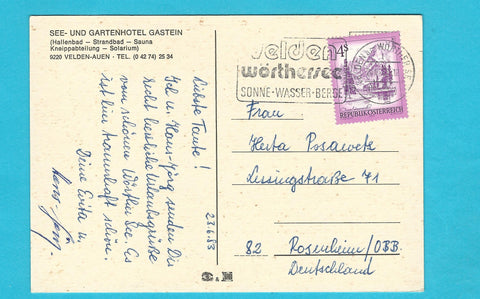 SEE- UND GARTENHOTEL GASTEIN
(Hallenbad – Strandbad – Sauna
Kneippabteilung – Solarium)
9220 VELDEN-AUEN · TEL. (0 42 74) 25 34
Liebste Tante!
u. Hans-Jörg senden Dir
recht herzliche Urlaubsgrüße
vom schönen Wörther See. Es
ist hier traumhaft schön.
Deine Evita u.
Hans-Jörg
23.6.83
velden
wörthersee
SONNE · WASSER · BERGE
4S
REPUBLIK ÖSTERREICH
Frau
Herta Posaweck
Lessingstraße 71
82 Rosenheim/OBB.
Deutschland